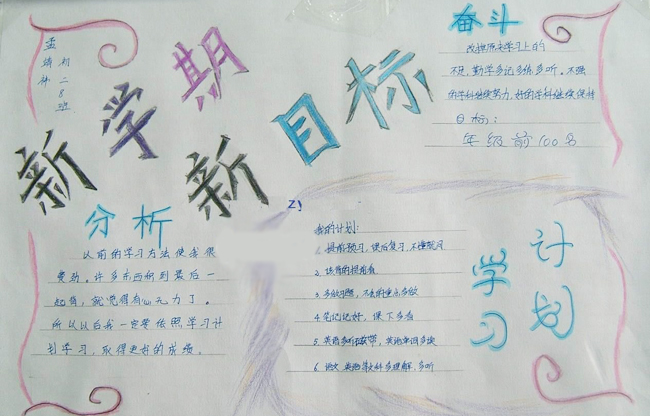 新学期
新目标
奋斗
改掉原来学习上的
不足,勤学多记多练多听。不强
的学科继续努力,好的学科继续保持
目标:
年级前100名
分析
以前的学习方法使我很
费劲。许多东西积到最后一
起背,就觉得有心无力了。
所以以后我一定要依照学习计
划学习,取得更好的成绩。
我的计划:
1.提前预习,课后复习,不懂就问
2.该背的提前背
3.多做习题,不会的重点多做
4.笔记记好,课下多看
5.英语多听歌带,英语单词多读
6.语文 英语等文科多理解,多听
学习
计划